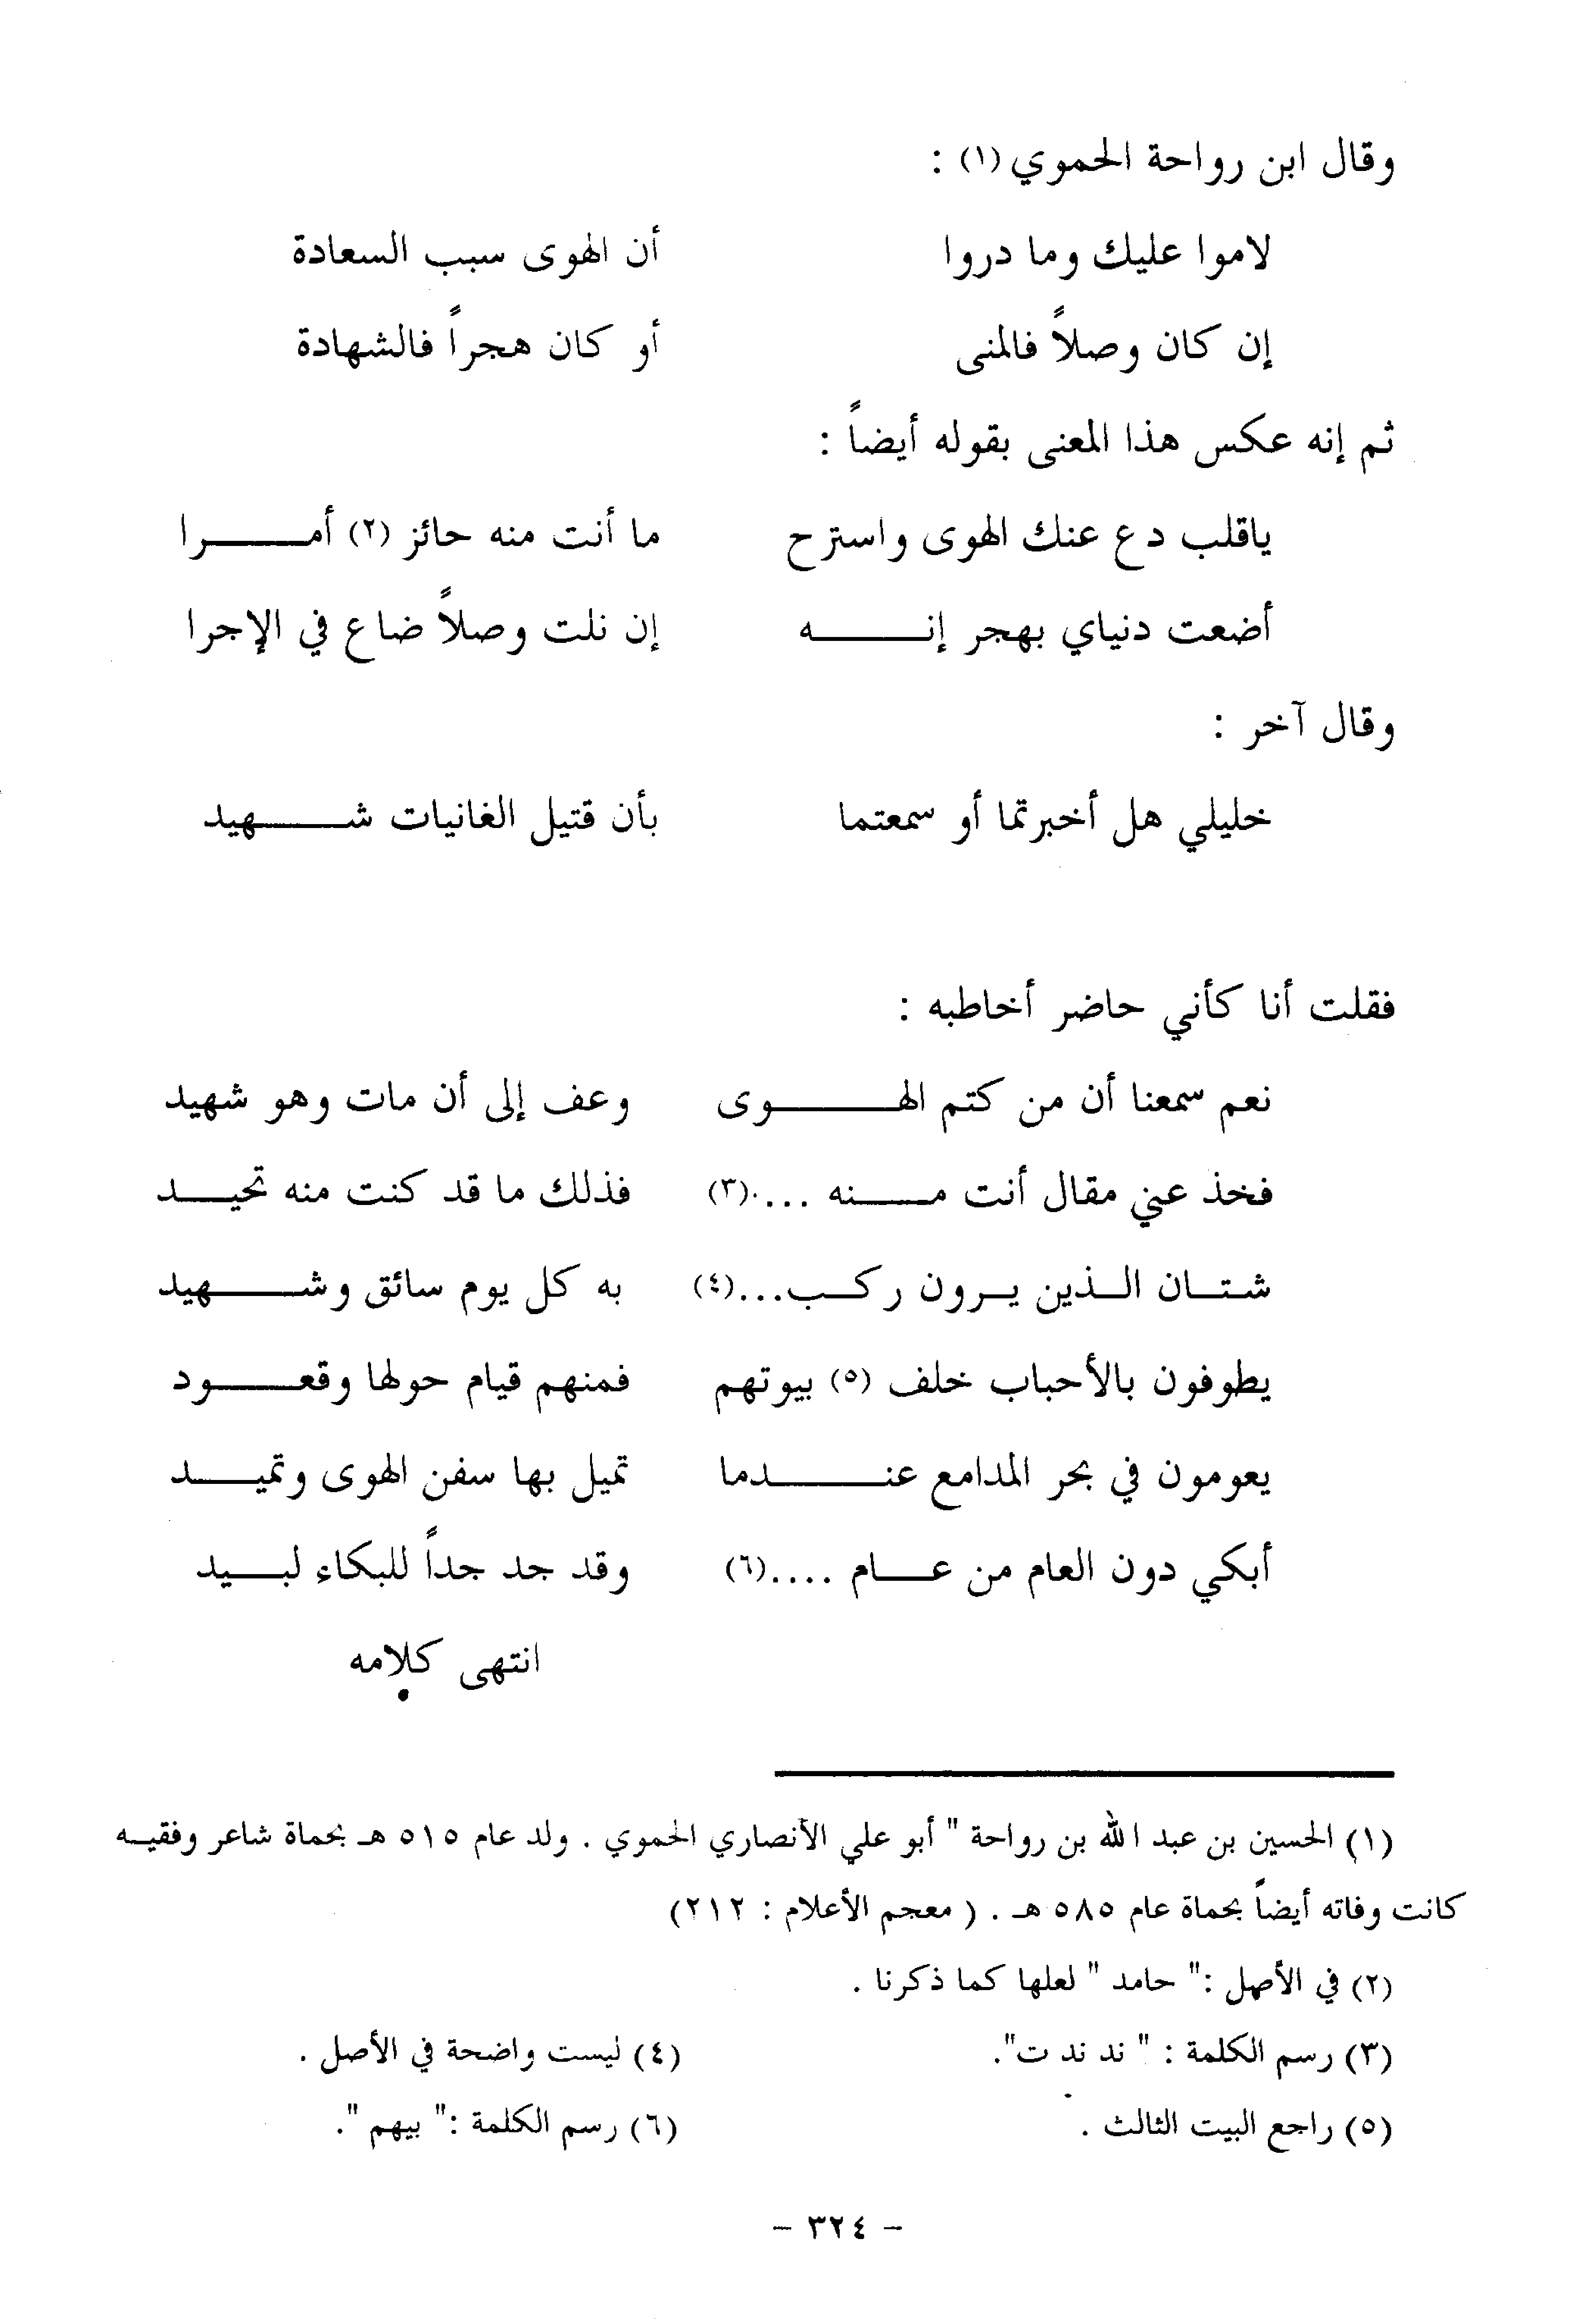 وقال ابن رواحة الحموي (١) :
لاموا عليك وما دروا أن الهوى سبب السعادة
إن كان وصلاً فالمنى أو كان هجراً فالشهادة
ثم إنه عكس هذا المعنى بقوله أيضاً :
ياقلب دع عنك الهوى واسترح ما أنت منه حائز (٢) أمــــرا
أضعت دنياي بهجر إنـــــه إن نلت وصلاً ضاع في الإجرا
وقال آخر :
خليلي هل أخبرتما أو سمعتما بأن قتيل الغانيات شــــهيد
فقلت أنا كأني حاضر أخاطبه :
نعم سمعنا أن من كتم الهـــــوى وعف إلى أن مات وهو شهيد
فخذ عني مقال أنت مـــنه ....(٣) فذلك ما قد كنت منه تحيـــد
شتـان الـذين يـرون ركـب...(٤) به كل يوم سائق وشــــهيد
يطوفون بالأحباب خلف (٥) بيوتهم فمنهم قيام حولها وقعــــود
يعومون في بحر المدامع عنـــــدما تميل بها سفن الهوى وتميـــد
أبكي دون العام من عـــام ....(٦) وقد جد جداً للبكاء لبـــيد
انتهى كلامه
(١) الحسين بن عبد الله بن رواحة " أبو علي الأنصاري الحموي . ولد عام ٥١٥ هـ بحماة شاعر وفقيـه
كانت وفاته أيضاً بحماة عام ٥٨٥ هـ . ( معجم الأعلام : ٢١٢)
(٢) في الأصل :" حامد " لعلها كما ذكرنا .
(٣) رسم الكلمة : " ند ند ت". (٤) ليست واضحة في الأصل .
(٥) راجع البيت الثالث . (٦) رسم الكلمة :" بيهم ".
- ٣٢٤ -